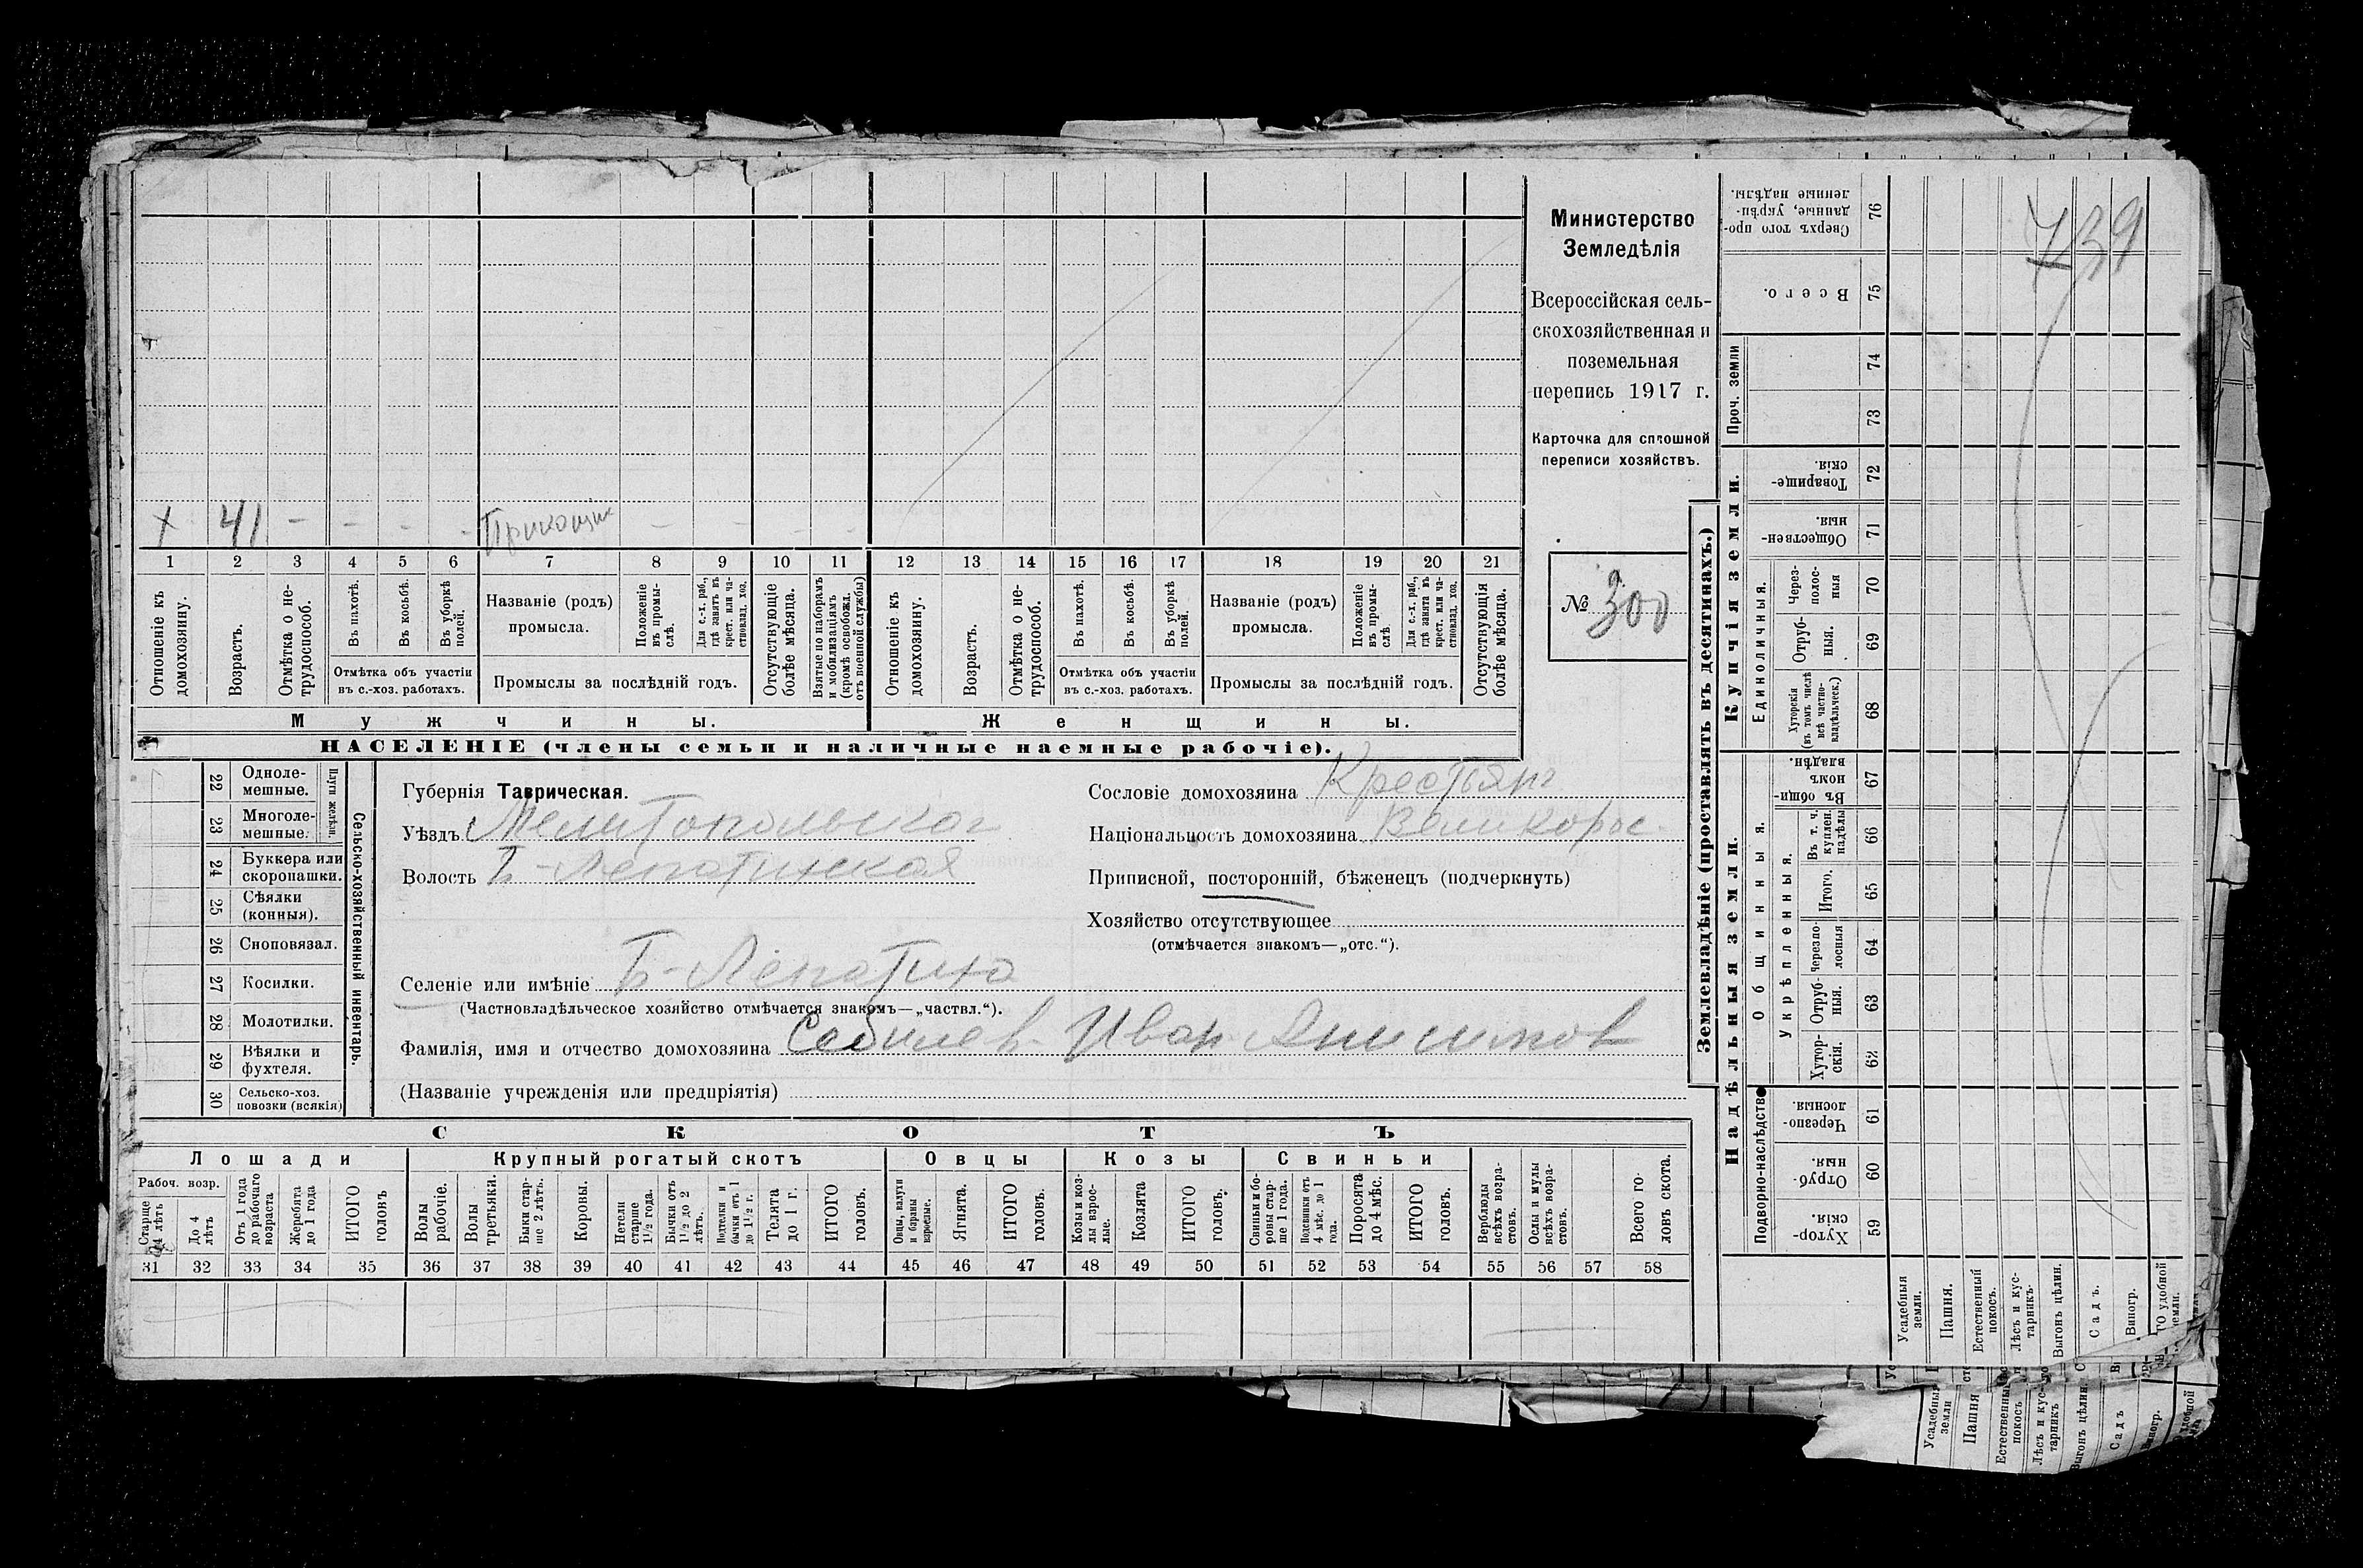 Министерство
Земледѣлія
Всероссійская сель-
скохозяйственная и
поземельная
перепись 1917 г.
Карточка для сплошной
переписи хозяйствъ.
№ 300
739
х 41 - - - - Прикащик - - - -
1 2 3 4 5 6 7 8 9 10 11 12 13 14 15 16 17 18 19 20 21
Отношеніе къ домохозяину.
Возрастъ.
Отмѣтка о не-трудоспособ.
Въ пахотѣ.
Въ косьбѣ.
Въ уборкѣ полей.
Отмѣтка объ участіи
въ с.-хоз. работахъ.
Названіе (родъ)
промысла.
Положеніе въ промы-слѣ.
Для с.-х. раб., гдѣ занятъ въ крест. или ча-стновлад. хоз.
Промыслы за послѣдній годъ.
Отсутствующіе болѣе мѣсяца.
Взятые по наборамъ и мобилизаціямъ (кромѣ освобожд. отъ военной службы)
Отношеніе къ домохозяину.
Возрастъ.
Отмѣтка о не-трудоспособ.
Въ пахотѣ.
Въ косьбѣ.
Въ уборкѣ полей.
Отмѣтка объ участіи
въ с.-хоз. работахъ.
Названіе (родъ)
промысла.
Положеніе въ промы-слѣ
Для с.-х. раб., гдѣ занята въ крест. или ча-стновлад. хоз.
Промыслы за послѣдній годъ.
Отсутствующія болѣе мѣсяца.
Мужчины. Женщины.
НАСЕЛЕНІЕ (члены семьи и наличные наемные рабочіе).
22 Одноле-мешные.
23 Многоле-мешные.
Плуги желѣзн.
24 Буккера или скоропашки.
25 Сѣялки (конныя).
26 Сноповязал.
27 Косилки.
28 Молотилки.
29 Вѣялки и фухтеля.
30 Сельско-хоз. повозки (всякія)
Сельско-хозяйственный инвентарь.
Губернія Таврическая.
Уѣздъ Мелитопольской
Волость Б-Лепатихская
Сословіе домохозяина Крестьян
Національность домохозяина Великорос
Приписной, посторонній, бѣженецъ (подчеркнуть)
Хозяйство отсутствующее
(отмѣчается знакомъ—„отс.“).
Селеніе или имѣніе Б-Лепатиха
(Частновладѣльческое хозяйство отмѣчается знакомъ—„частвл.“).
Фамилія, имя и отчество домохозяина Иван Анисимов
(Названіе учрежденія или предпріятія)
СКОТЪ
Лошади Крупный рогатый скотъ Овцы Козы Свиньи
Рабоч. возр.
Старше 4 лѣтъ
До 4 лѣтъ
Отъ 1 года до рабочаго возраста
Жеребята до 1 года
ИТОГО головъ
Волы рабочіе.
Волы третьяки.
Быки стар-ше 2 лѣтъ.
Коровы.
Нетели старше 1½ года.
Бычки отъ 1½ до 2 лѣтъ.
Подтелки и бычки отъ 1 до 1½ г.
Телята до 1 г.
ИТОГО головъ.
Овцы, валухи и бараны взрослые.
Ягнята.
ИТОГО головъ.
Козы и коз-лы взрос-лые.
Козлята
ИТОГО головъ.
Свиньи и бо-ровы стар-ше 1 года.
Подсвинки отъ 4 мѣс. до 1 года.
Поросята до 4 мѣс.
ИТОГО головъ.
Верблюды всѣхъ возра-стовъ.
Ослы и мулы всѣхъ возра-стовъ.
Всего го-ловъ скота.
31 32 33 34 35 36 37 38 39 40 41 42 43 44 45 46 47 48 49 50 51 52 53 54 55 56 57 58
Землевладѣніе (проставлять въ десятинахъ.)
Купчія земли.
Надѣльныя земли.
Проч. земли
Единоличныя.
Общинныя.
Укрѣпленныя.
Подворно-наслѣдств
Сверхъ того про-данные, укрѣп-ленные надѣлы. 76
Всего. 75
74
73
Товарище-скія. 72
Обществен-ныя. 71
Через-полос-ныя 70
Отруб-ныя. 69
Хуторскія (въ томъ числѣ всѣ частно-владѣльческ.) 68
Въ общи-номъ владѣн. 67
Въ т. ч. куплен. надѣлы 66
Итого. 65
Черезпо-лосныя 64
Отруб-ныя. 63
Хутор-скія. 62
Черезпо-лосныя. 61
Отруб-ныя. 60
Хутор-скія. 59
Усадебныя земли.
Пашня.
Естественный покосъ.
Лѣсъ и кус-тарникъ.
Выгонъ цѣлин.
Садъ.
Виногр.
ГО удобной земли.
Усадебныя земли
Пашня
Естественный покосъ
Лѣсъ и кус-тарникъ
Выгонъ цѣлин.
Садъ
Виногр.